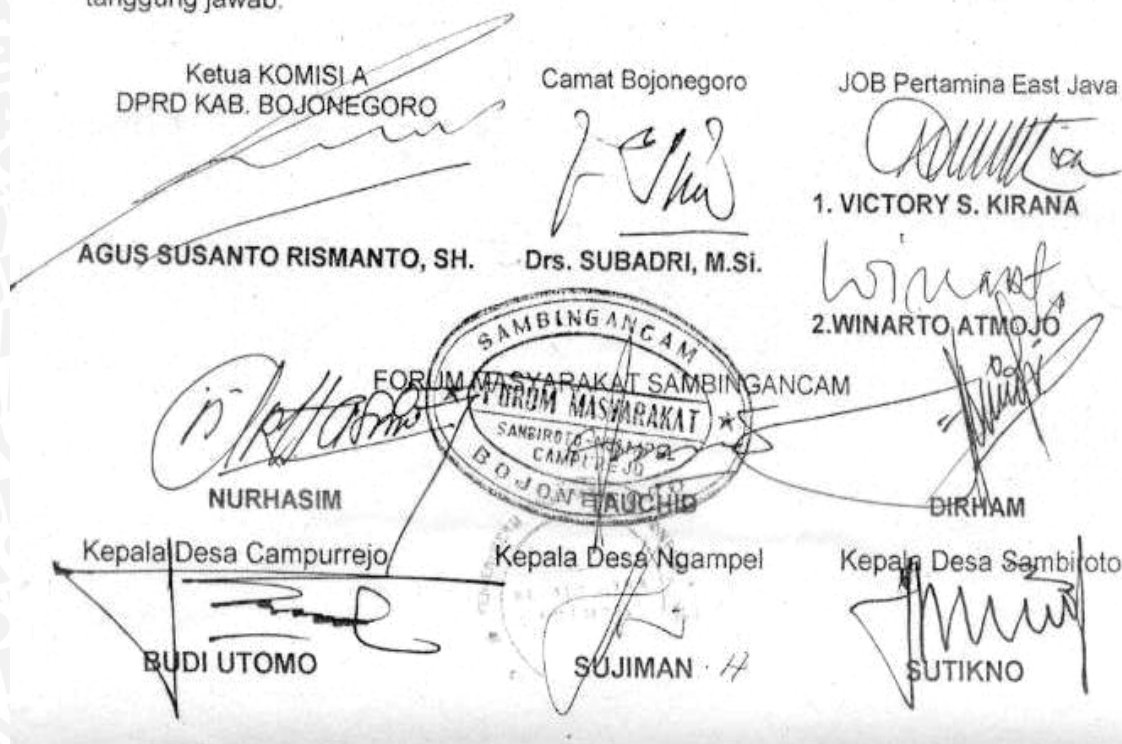 tanggung jawab.
Ketua KOMISI A
DPRD KAB. BOJONEGORO
AGUS SUSANTO RISMANTO, SH.
Camat Bojonegoro
Drs. SUBADRI, M.Si.
JOB Pertamina East Java
1. VICTORY S. KIRANA
2.WINARTO ATMOJO
FORUM MASYARAKAT SAMBINGANCAM
SAMBINGANCAM
FORUM MASYARAKAT
SAMBIROTO-NGAMPEL
CAMPUREJO
BOJONEGORO
NURHASIM
TAUCHID
DIRHAM
Kepala Desa Campurrejo
BUDI UTOMO
Kepala Desa Ngampel
SUJIMAN
Kepala Desa Sambiroto
SUTIKNO